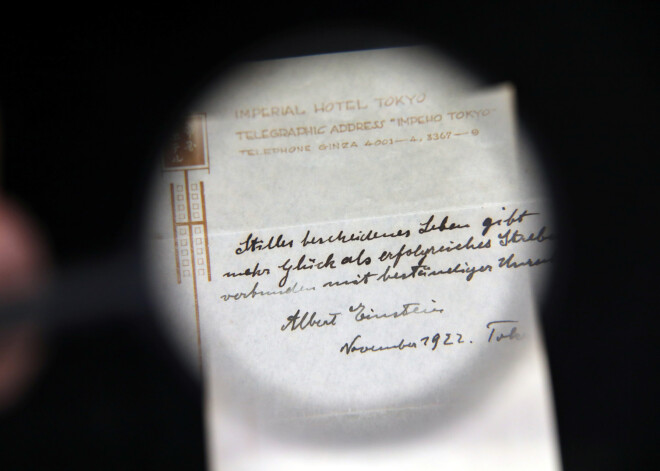 IMPERIAL HOTEL TOKYO
TELEGRAPHIC ADDRESS "IMPEHO TOKYO"
TELEPHONE GINZA 4001—4, 5367—9
Stilles bescheidenes Leben gibt
mehr Glück als erfolgreiches Streb
verbunden mit beständiger Unru
Albert Einstein
November 1922. Tok